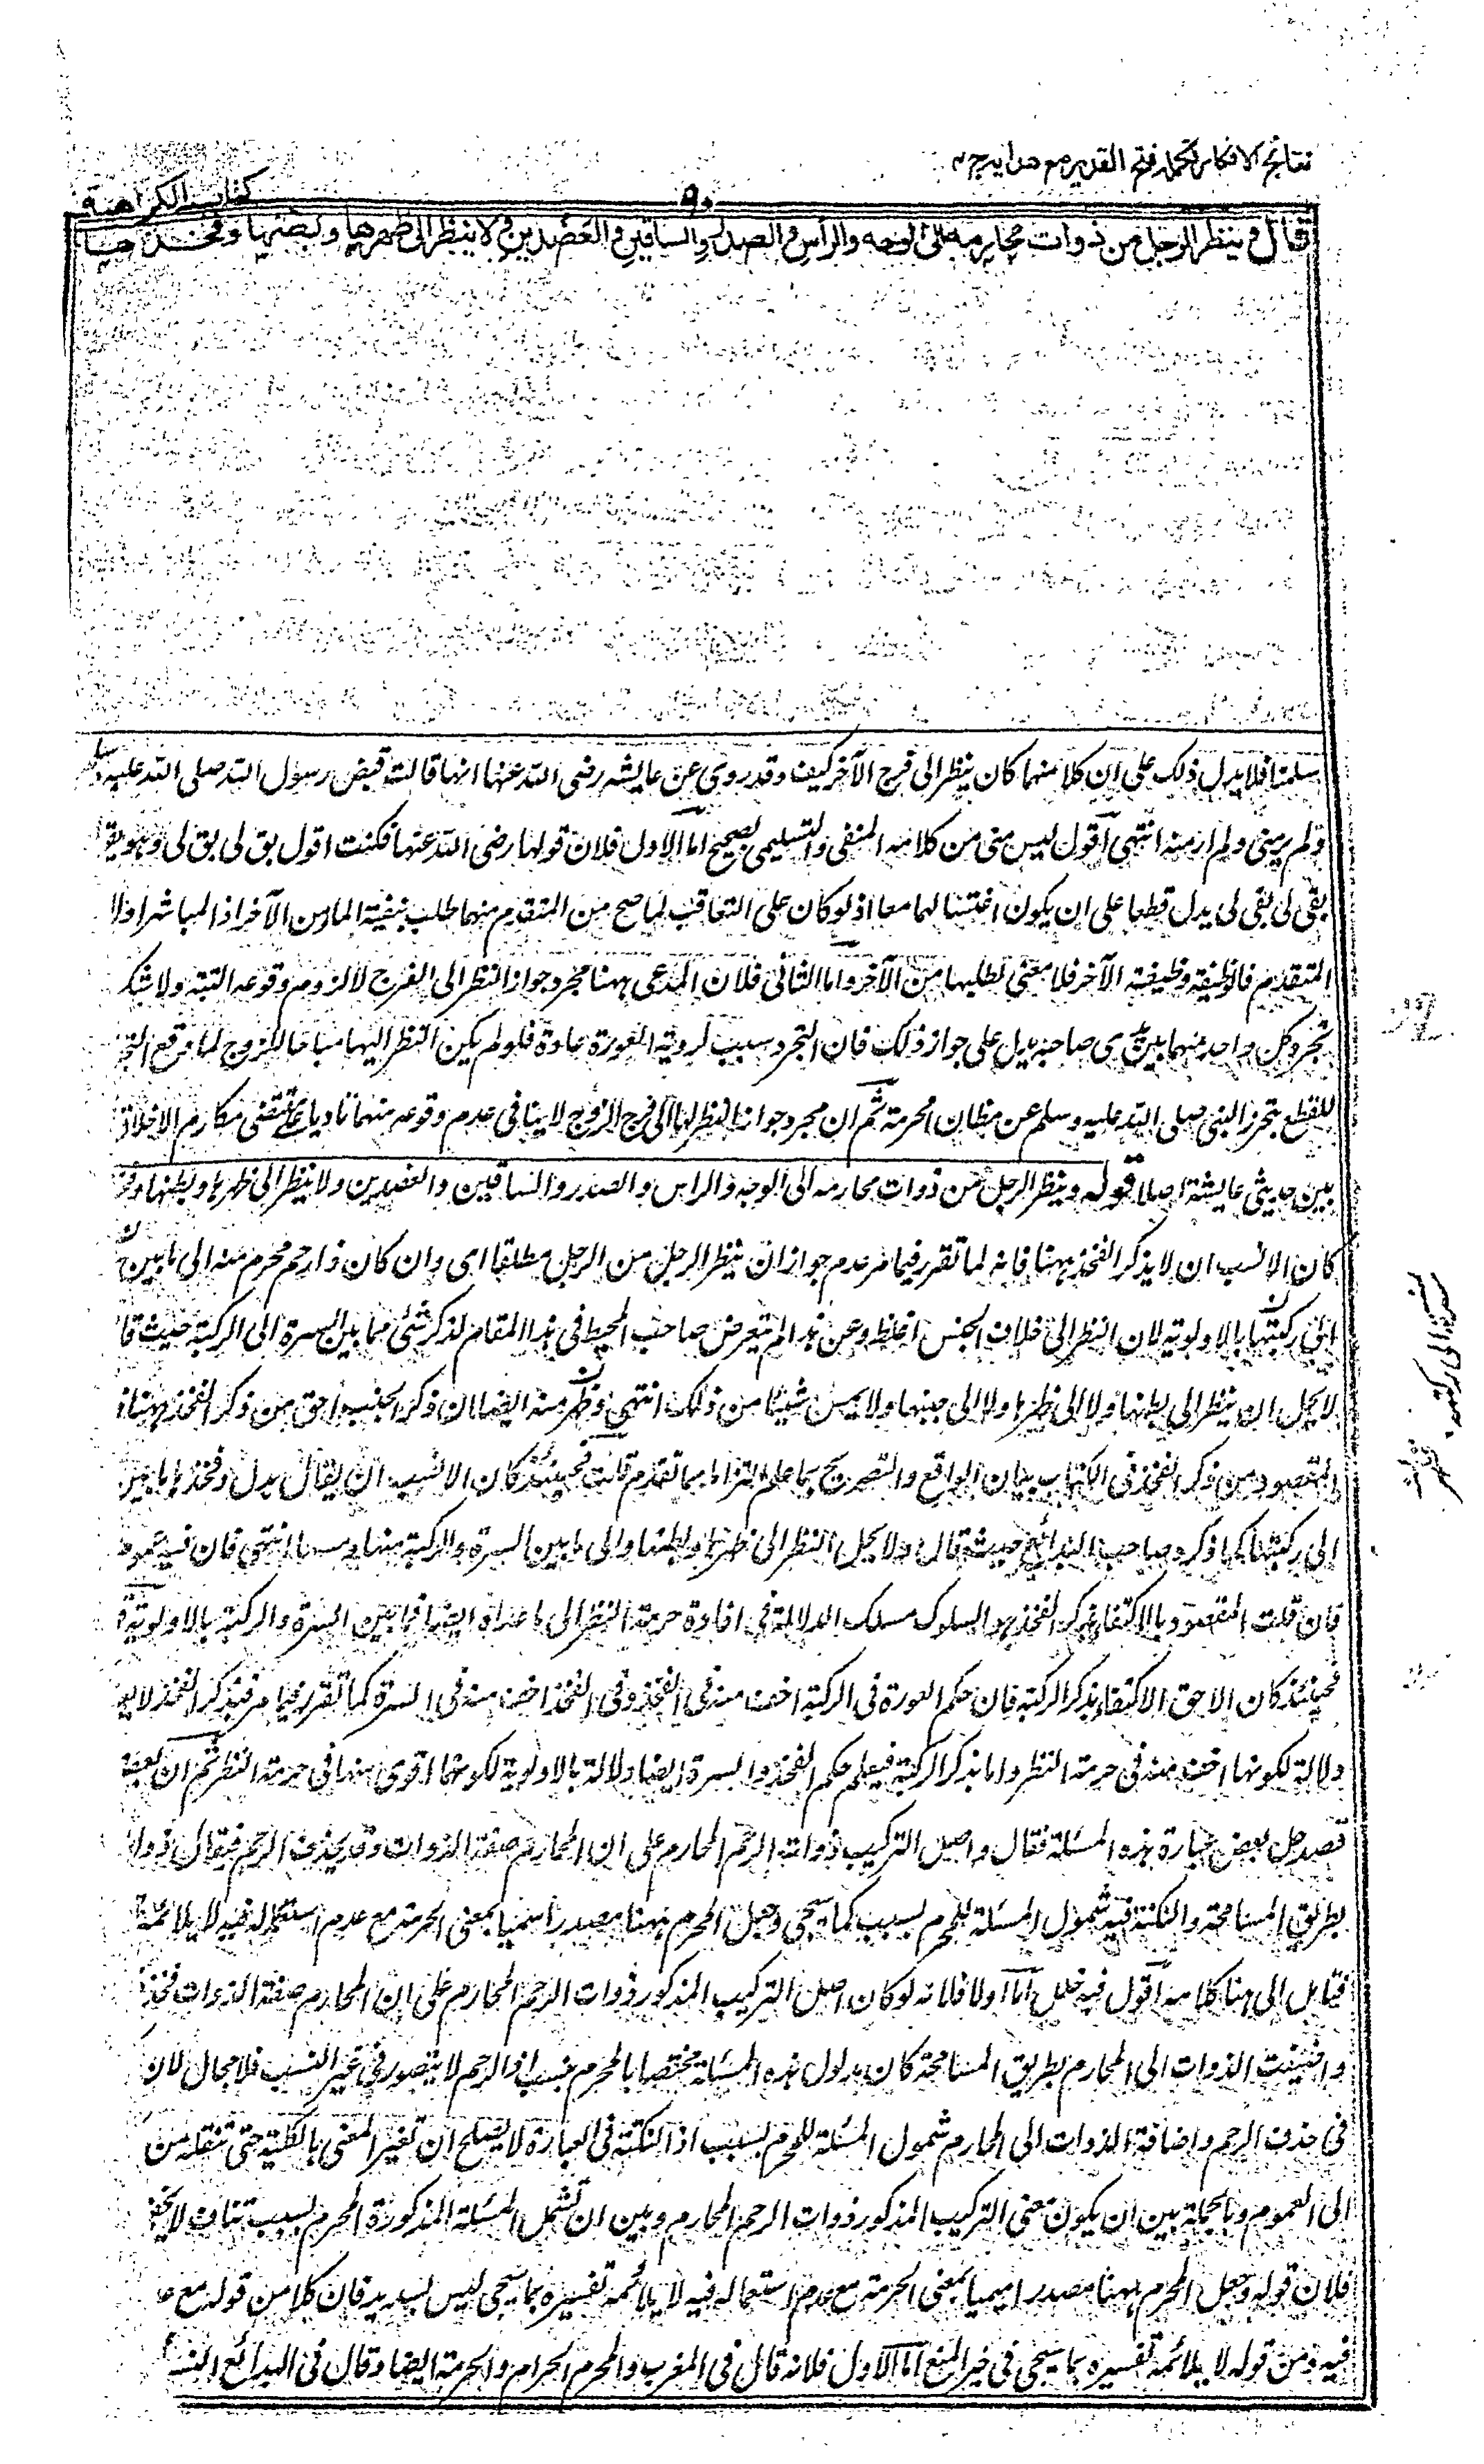 نتائج الافكار تكملہ فتح القدير مع هدايہ ج ٤
٩٠
كتاب الكراهية
قال و ينظر الرجل من ذوات محارمه الى الوجه والرأس و الصدر والساقين و العضدين و لا ينظر الى ظهرها و بطنها و فخذها
سلمنا فلا يدل ذلك على ان كلا منهما كان ينظر الى فرج الآخر كيف وقد روى عن عايشه رضى الله عنها انها قالت قبض رسول الله صلى الله عليه وسلم
ولم ير منى ولم ار منه انتهى اقول ليس شئ من كلامه المنفى والتسليمى بصحيح اما الاول فلان قولها رضى الله عنها فكنت اقول بق لى بق لى وهو يقو
بقى لى بقى لى يدل قطعا على ان يكون اغتسالهما معا اذ لو كان على التعاقب لما صح من المتقدم منهما طلب بقية الماء من الآخر اذ المباشر اولا
المتقدم فالوظيفة وظيفة الآخر فلا معنى لطلبها من الآخر واما الثانى فلان المدعى ههنا مجرد جواز النظر الى الفرج لا لزوم وقوعه البتة ولا شك
تجرد كل واحد منهما بين يدى صاحبه يدل على جواز ذلك فان التجرد سبب لروية العورة عادة فلو لم يكن النظر اليها مباحا للزوج لما وقع التجر
للقطع بتحرز النبى صلى الله عليه وسلم عن مظان الحرمة ثم ان مجرد جواز النظر لها الى فرج الزوج لا ينافى عدم وقوعه منهما تاديا على مقتضى مكارم الاخلاق
بين حديثى عايشة اصلا قوله وينظر الرجل من ذوات محارمه الى الوجه والراس والصدر والساقين والعضدين ولا ينظر الى ظهرها وبطنها وفخ
كان الانسب ان لا يذكر الفخذ ههنا فانه لما تقرر فيما مر عدم جواز ان ينظر الرجل من الرجل مطلقا اى وان كان ذا رحم محرم منه الى ما بين
الى ركبتها بالاولوية لان النظر الى خلاف الجنس اغلظ وعن هذا لم يتعرض صاحب المحيط فى هذا المقام لذكر شئ مما بين السرة الى الركبة حيث قا
لا يحل ان ينظر الى بطنها ولا الى ظهرها ولا الى جنبها ولا يمس شيئا من ذلك انتهى وظهر منه ايضا ان ذكر الجنب احق من ذكر الفخذ ههنا
المقصود من ذكر الفخذ فى الكتاب بيان الواقع والتصريح بما علم التزاما مما تقدم قلت فحينئذ كان الانسب ان يقال بدل وفخذها ما بين
الى ركبتها كما ذكره صاحب البدائع حيث قال ولا يحل النظر الى ظهرها وبطنها والى ما بين السرة والركبة منها ومسها انتهى فان فيه عموما
فان قلت المقصود بالاكتفاء بذكر الفخذ هو السلوك مسلك الدلالة فى افادة حرمة النظر الى ما عداه ايضا فيما بين السرة والركبة بالاولوية
فحينئذ كان الاحق الاكتفاء بذكر الركبة فان حكم العورة فى الركبة اخف منه فى الفخذ وفى الفخذ اخف منه فى السرة كما تقرر فيما مر فبذكر الفخذ لا يع
دلالة لكونها اخف منه فى حرمة النظر واما بذكر الركبة فيعلم حكم الفخذ والسرة ايضا دلالة بالاولوية لكونهما اقوى منها فى حرمة النظر ثم ان بعض
قصد حل بعض عبارة هذه المسئلة فقال واصل التركيب ذوات الرحم المحارم على ان المحارم صفة الذوات وقد يحذف الرحم فيقال ذوا
بطريق المسامحة والنكتة فيه شمول المسئلة للمحرم بسبب كما سيجى وجعل المحرم ههنا مصدرا ميميا بمعنى الحرمة مع عدم استعماله فيه لا يلائمه
فتامل الى هنا كلامه اقول فيه خلل اما اولا فلانه لو كان اصل التركيب المذكور ذوات الرحم المحارم على ان المحارم صفة الذوات فحذ
واضيفت الذوات الى المحارم بطريق المسامحة كان مدلول هذه المسئلة مختصا بالمحرم بنسب اذ الرحم لا يتصور فى غير النسب فلا مجال لان
فى حذف الرحم واضافة الذوات الى المحارم شمول المسئلة للمحرم بسبب اذ النكتة فى العبارة لا يصلح ان تغير المعنى بالكلية حتى تنقله من
الى العموم وبالجملة بين ان يكون معنى التركيب المذكور ذوات الرحم المحارم وبين ان تشمل المسئلة المذكورة المحرم بسبب تناف لا يخف
فلان قوله وجعل المحرم ههنا مصدرا ميميا بمعنى الحرمة مع عدم استعماله فيه لا يلائمه تفسيره بما سيجى ليس بسديد فان كلا من قوله مع عد
فيه ومن قوله لا يلائمه تفسيره بما سيجى فى خير المنع اما الاول فلانه قال فى المغرب والمحرم الحرام والحرمة ايضا وقال فى البدائع النس